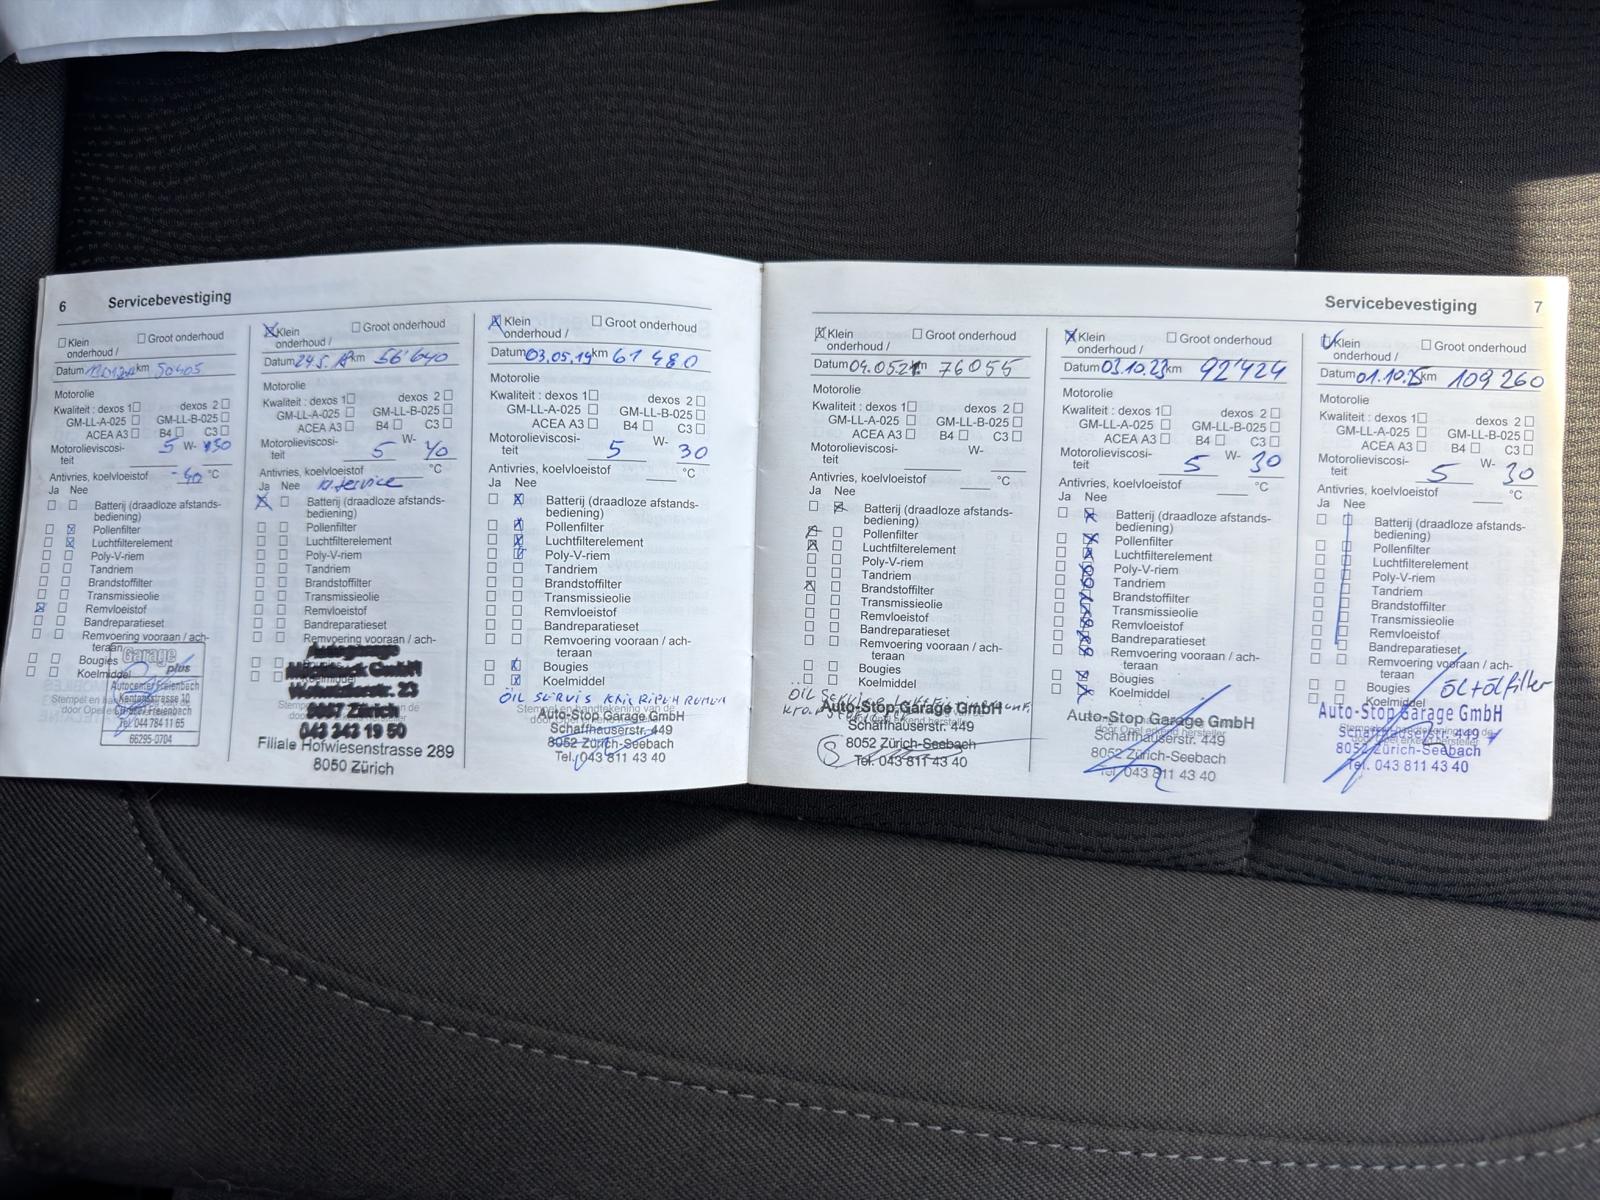 6 Servicebevestiging
Klein onderhoud / Groot onderhoud
Datum km 50405
Motorolie
Kwaliteit : dexos 1 dexos 2
GM-LL-A-025 GM-LL-B-025
ACEA A3 B4 C3
Motorolieviscosi-
teit 5 W- 30
Antivries, koelvloeistof -40 °C
Ja Nee
Batterij (draadloze afstands-
bediening)
Pollenfilter
Luchtfilterelement
Poly-V-riem
Tandriem
Brandstoffilter
Transmissieolie
Remvloeistof
Bandreparatieset
Remvoering vooraan / ach-
teraan
Bougies
Koelmiddel
Garage
plus
Autocenter Freienbach
Kantonsstrasse 10
Freienbach
Tel. 044 784 11 65
66295-0704
Klein onderhoud / Groot onderhoud
Datum 24.5.18 km 56'640
Motorolie
Kwaliteit : dexos 1 dexos 2
GM-LL-A-025 GM-LL-B-025
ACEA A3 B4 C3
Motorolieviscosi-
teit 5 W- 40
Antivries, koelvloeistof °C
Ja Nee kl. service
Batterij (draadloze afstands-
bediening)
Pollenfilter
Luchtfilterelement
Poly-V-riem
Tandriem
Brandstoffilter
Transmissieolie
Remvloeistof
Bandreparatieset
Remvoering vooraan / ach-
GmbH
23
Zürich
043 343 19 50
Filiale Hofwiesenstrasse 289
8050 Zürich
Klein onderhoud / Groot onderhoud
Datum 03.05.19 km 61 480
Motorolie
Kwaliteit : dexos 1 dexos 2
GM-LL-A-025 GM-LL-B-025
ACEA A3 B4 C3
Motorolieviscosi-
teit 5 W- 30
Antivries, koelvloeistof °C
Ja Nee
Batterij (draadloze afstands-
bediening)
Pollenfilter
Luchtfilterelement
Poly-V-riem
Tandriem
Brandstoffilter
Transmissieolie
Remvloeistof
Bandreparatieset
Remvoering vooraan / ach-
teraan
Bougies
Koelmiddel
ÖIL SERVIS
Stempel en handtekening van de
Auto-Stop Garage GmbH
Schaffhauserstr. 449
8052 Zürich-Seebach
Tel. 043 811 43 40
Servicebevestiging 7
Klein onderhoud / Groot onderhoud
Datum 04.05.21 km 76055
Motorolie
Kwaliteit : dexos 1 dexos 2
GM-LL-A-025 GM-LL-B-025
ACEA A3 B4 C3
Motorolieviscosi-
teit W-
Antivries, koelvloeistof °C
Ja Nee
Batterij (draadloze afstands-
bediening)
Pollenfilter
Luchtfilterelement
Poly-V-riem
Tandriem
Brandstoffilter
Transmissieolie
Remvloeistof
Bandreparatieset
Remvoering vooraan / ach-
teraan
Bougies
Koelmiddel
ÖIL Service
Auto-Stop Garage GmbH
Schaffhauserstr. 449
8052 Zürich-Seebach
Tel. 043 811 43 40
Klein onderhoud / Groot onderhoud
Datum 03.10.23 km 92'424
Motorolie
Kwaliteit : dexos 1 dexos 2
GM-LL-A-025 GM-LL-B-025
ACEA A3 B4 C3
Motorolieviscosi-
teit 5 W- 30
Antivries, koelvloeistof °C
Ja Nee
Batterij (draadloze afstands-
bediening)
Pollenfilter
Luchtfilterelement
Poly-V-riem
Tandriem
Brandstoffilter
Transmissieolie
Remvloeistof
Bandreparatieset
Remvoering vooraan / ach-
teraan
Bougies
Koelmiddel
Auto-Stop Garage GmbH
Schaffhauserstr. 449
8052 Zürich-Seebach
Tel. 043 811 43 40
Klein onderhoud / Groot onderhoud
Datum 01.10.25 km 109 260
Motorolie
Kwaliteit : dexos 1 dexos 2
GM-LL-A-025 GM-LL-B-025
ACEA A3 B4 C3
Motorolieviscosi-
teit 5 W- 30
Antivries, koelvloeistof °C
Ja Nee
Batterij (draadloze afstands-
bediening)
Pollenfilter
Luchtfilterelement
Poly-V-riem
Tandriem
Brandstoffilter
Transmissieolie
Remvloeistof
Bandreparatieset
Remvoering vooraan / ach-
teraan
Bougies
Koelmiddel
ÖL+ÖLfilter
Auto-Stop Garage GmbH
Schaffhauserstr. 449
8052 Zürich-Seebach
Tel. 043 811 43 40